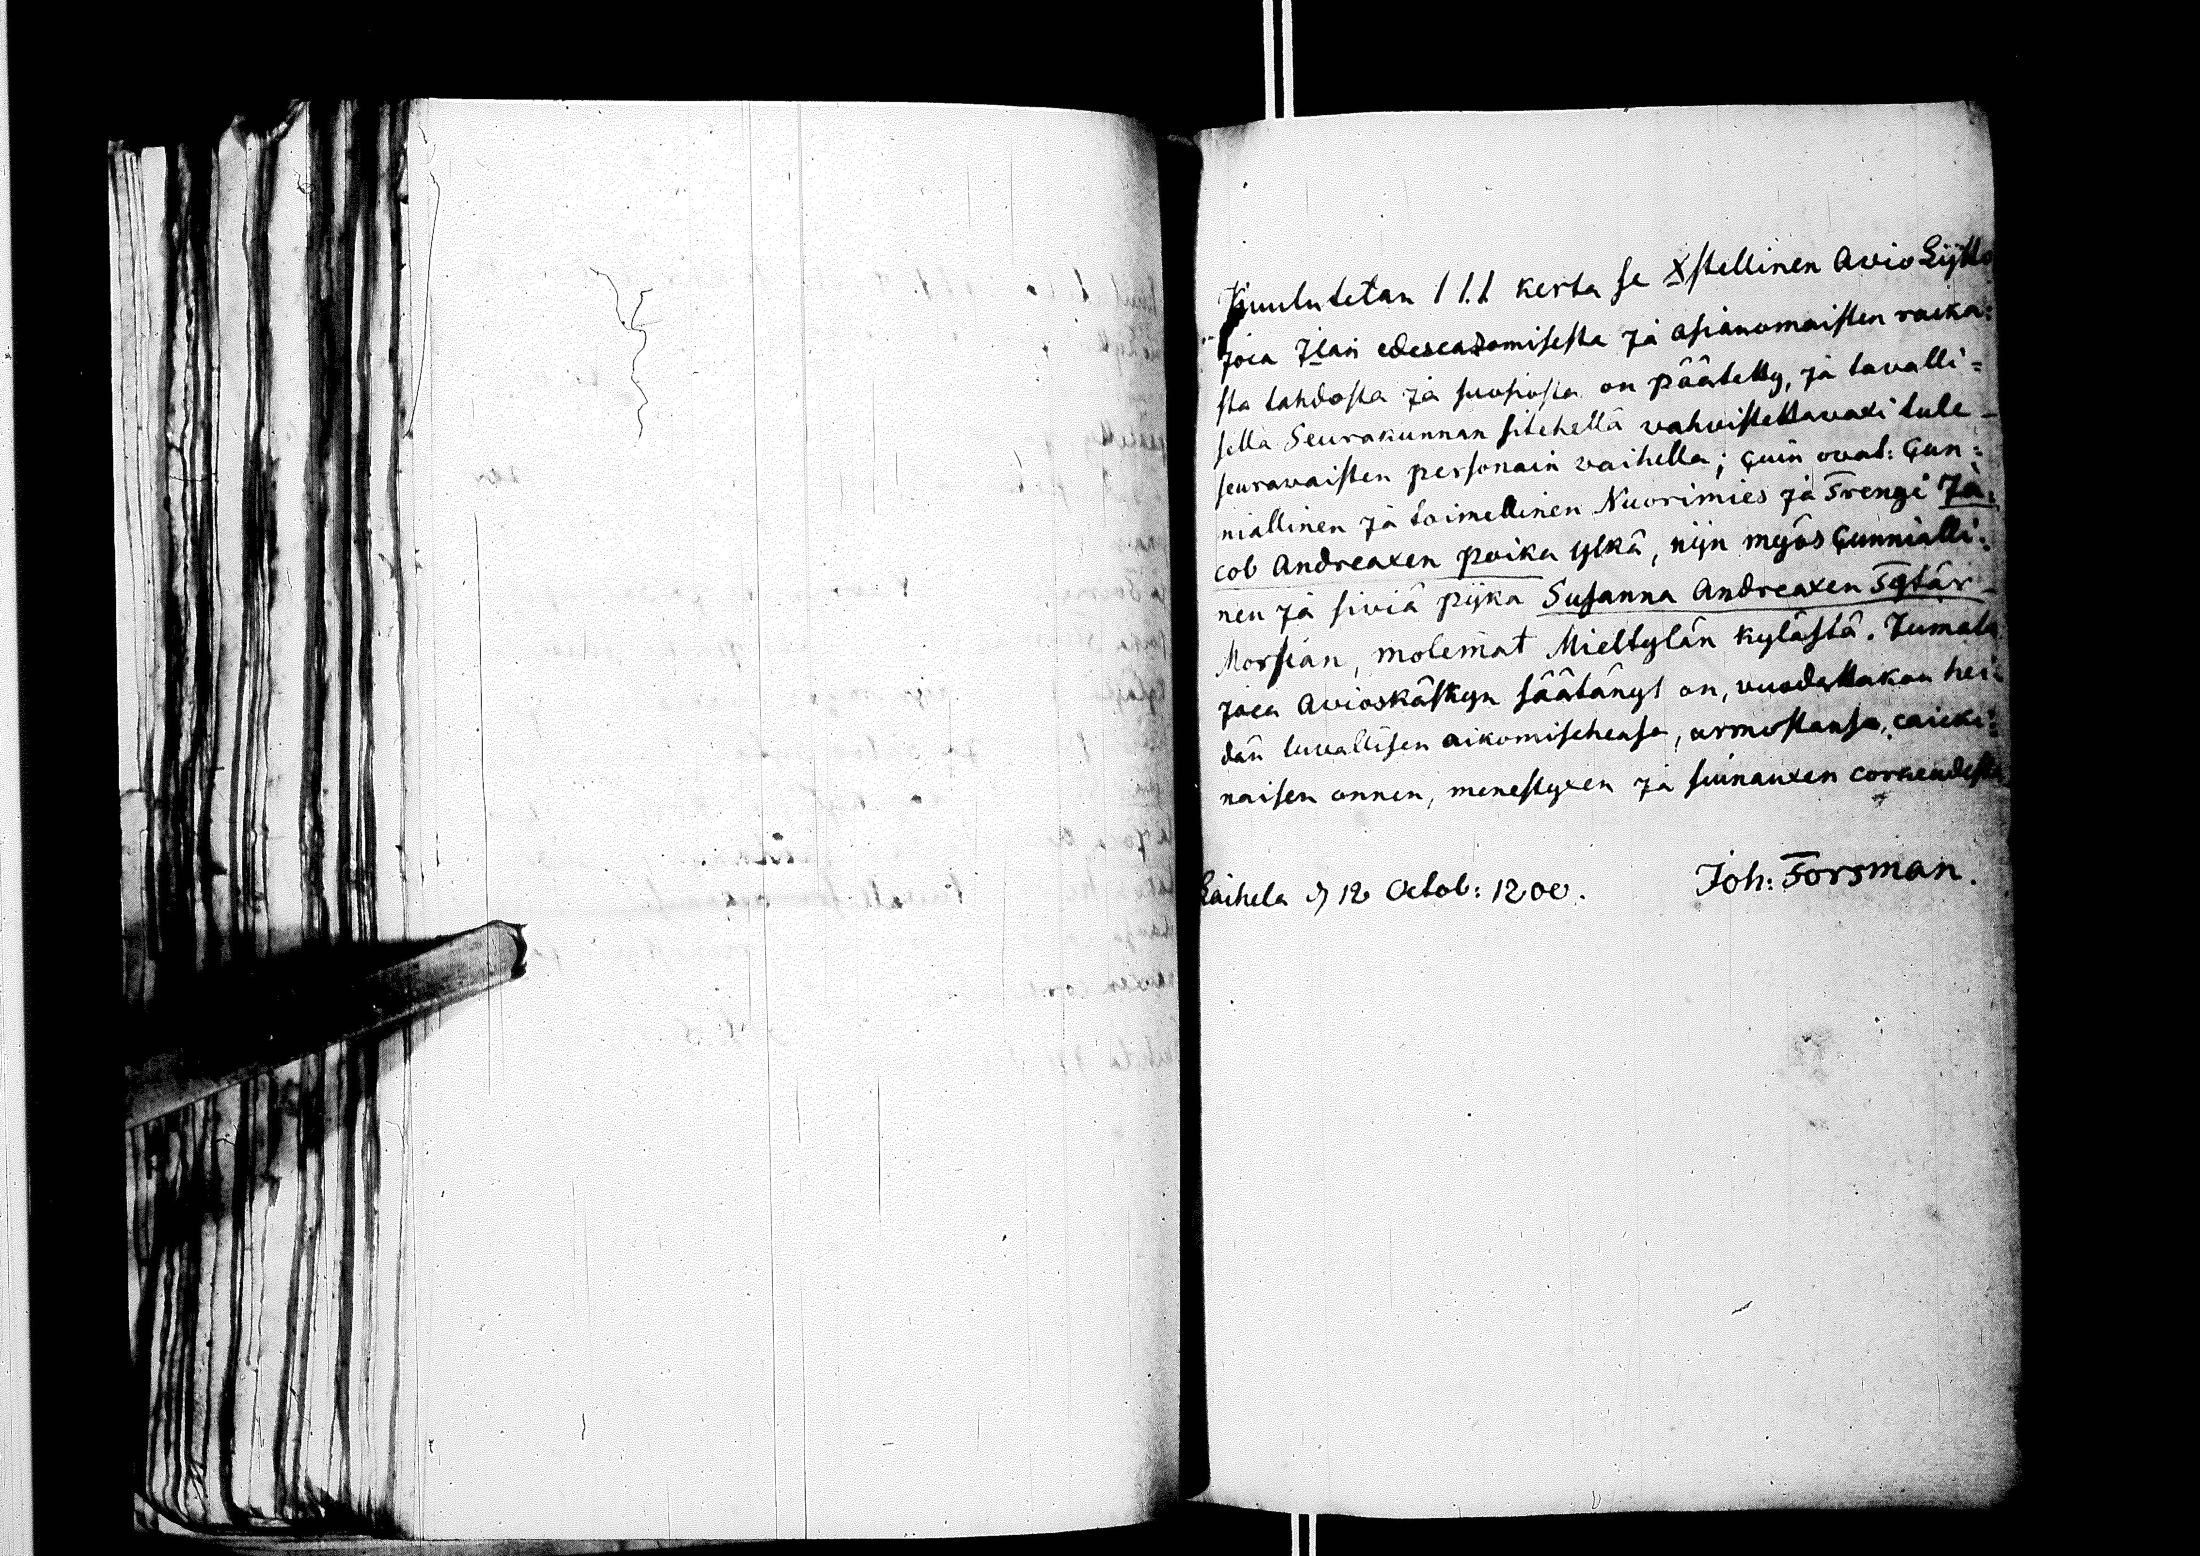 Kuulutetan 1 1.1 kerta se Xstellinen Avio Lijtto
joca Jlan edescazomisesta ja asianomaisten racka:
sta tahdosta ja suosiosta on päätetty, ja tavalli=
sella Seurakunnan sitehellä vahvistettavaxi tule-
seuravaisten personain vaihella; cuin ovat: Cun:
niallinen ja toimellinen Nuorimies ja Trengi Ja:
cob Andreaxen poika Ylkä, nijn myös Cunnialli:
nen ja siviä pijka Susanna Andreaxen Tytär-
Morsian, molemat Mieltylän kylästä. Jumala
joca Avioskäskyn säätänyt on, vuodattakon hei:
dän luvallisen aikomisehensa, armostansa, caicki:
naisen onnen, menestyxen ja siunauxen corkeudesta
Laihela d 12 Octob: 1200. Joh: Forsman.